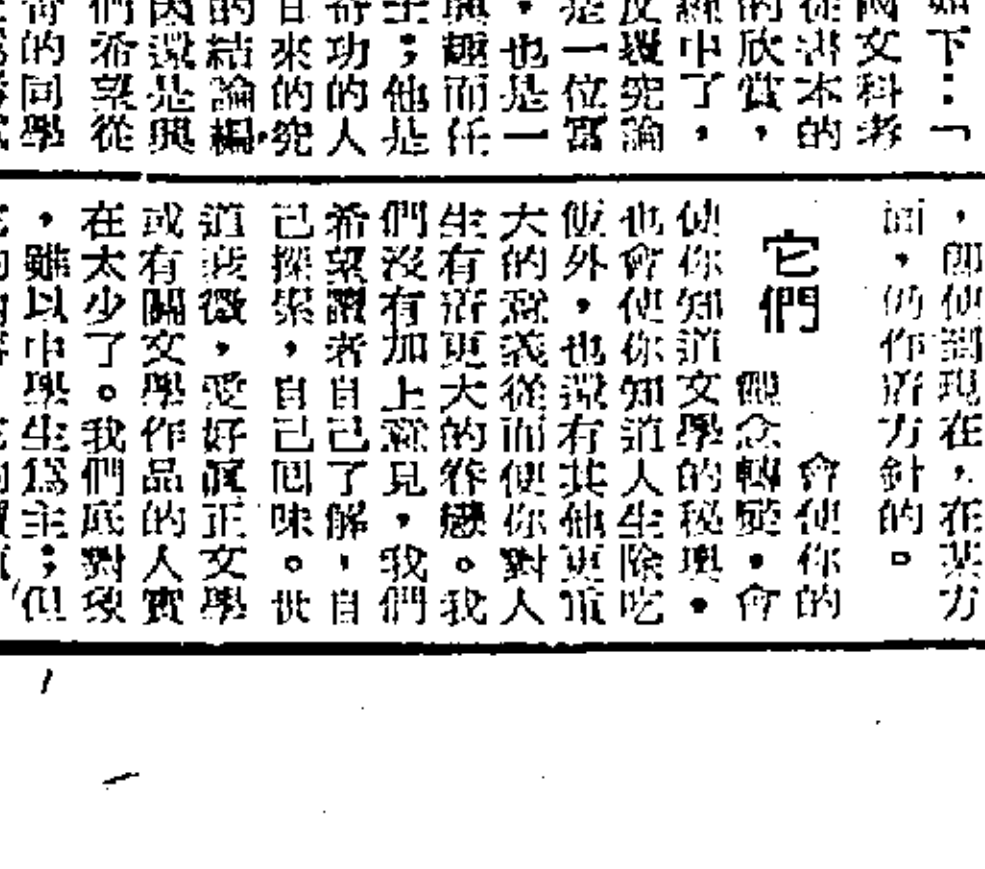 如下：「
國文科考
從書本的
的欣賞，
線中了，
反覆究論
是一位富
，也是一
興趣而任
王；他是
奇功的人
甘來的究
的結論編，
因還是興
們希望從
的同學
，即使到現在，在某方
面，仍作着方針的。
它們會使你的
觀念轉變。會
使你知道文學的秘奧。
也會使你知道人生除吃
飯外，也還有其他更重
大的意義從而使你對人
生有着更大的眷戀。我
們沒有加上意見，我們
希望讀者自己了解，自
己探索，自己回味。世
道衰微，愛好眞正文學
或有關文學作品的人實
在太少了。我們底對象
，雖以中學生爲主；但